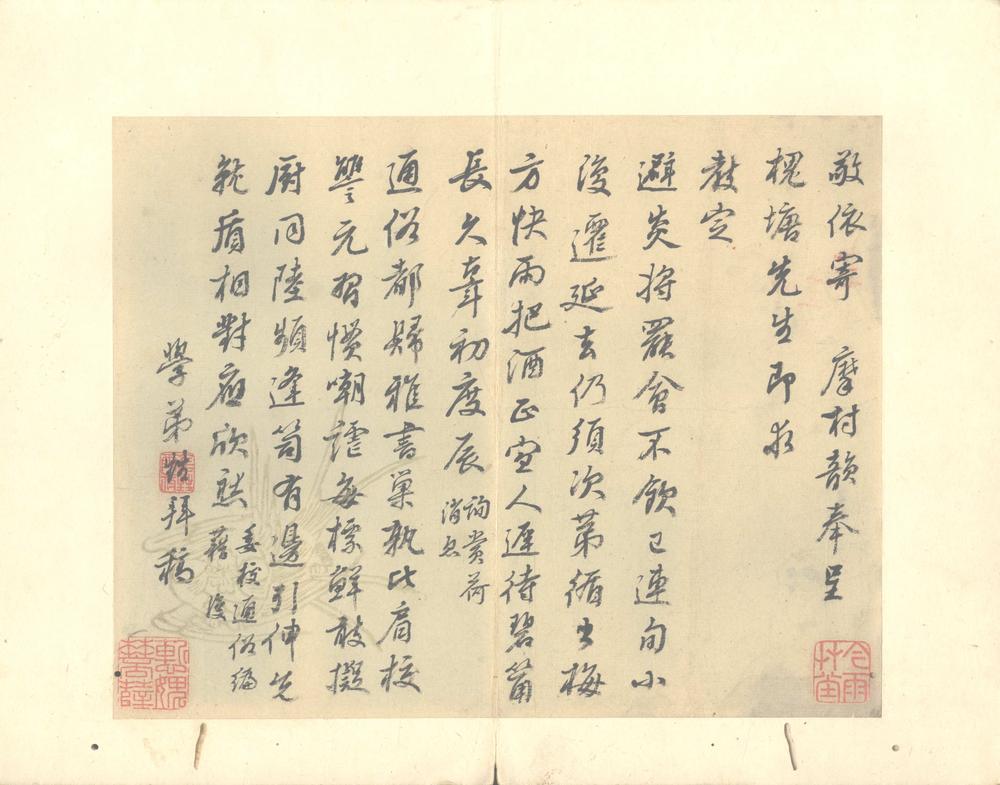 敬依寄 摩村韻奉呈
槐塘先生即求
教定
避炎将罷會不飲已連旬小
復遷延去仍須次第循出梅
方快雨把酒正宜人遲待碧筩
長久辜初度辰 詢賞荷
消息
通俗都歸雅書巢孰比肩校
讐元習慣嘲謔每標鮮敢擬
厨同陸頻逢笥有邊引伸先
就質相對應欣然 委校通俗編
藉復
學弟拜稿